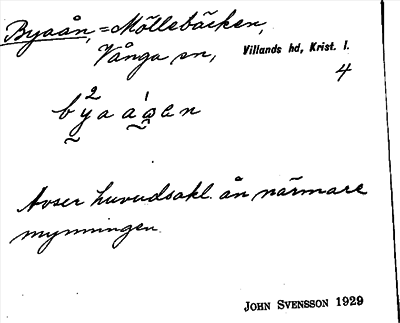 Byaån, = Möllebäcken,
Vånga sn, Villands hd, Krist. l.
4
Avser huvudsakl. ån närmare
mynningen.
JOHN SVENSSON 1929